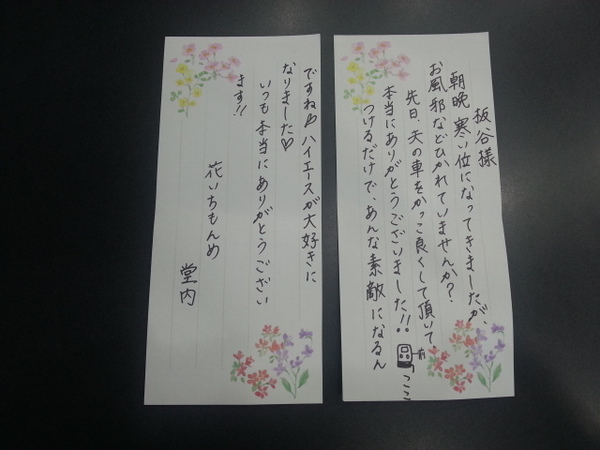 板谷様
朝晩寒い位になってきましたが、
お風邪などひかれていませんか？
先日、夫の車をかっこ良くして頂いて
本当にありがとうございました!!
前
ここ
つけるだけで、あんな素敵になるん
ですね♡ハイエースが大好きに
なりました♡
いつも本当にありがとうござい
ます!!
花いちもんめ
堂内